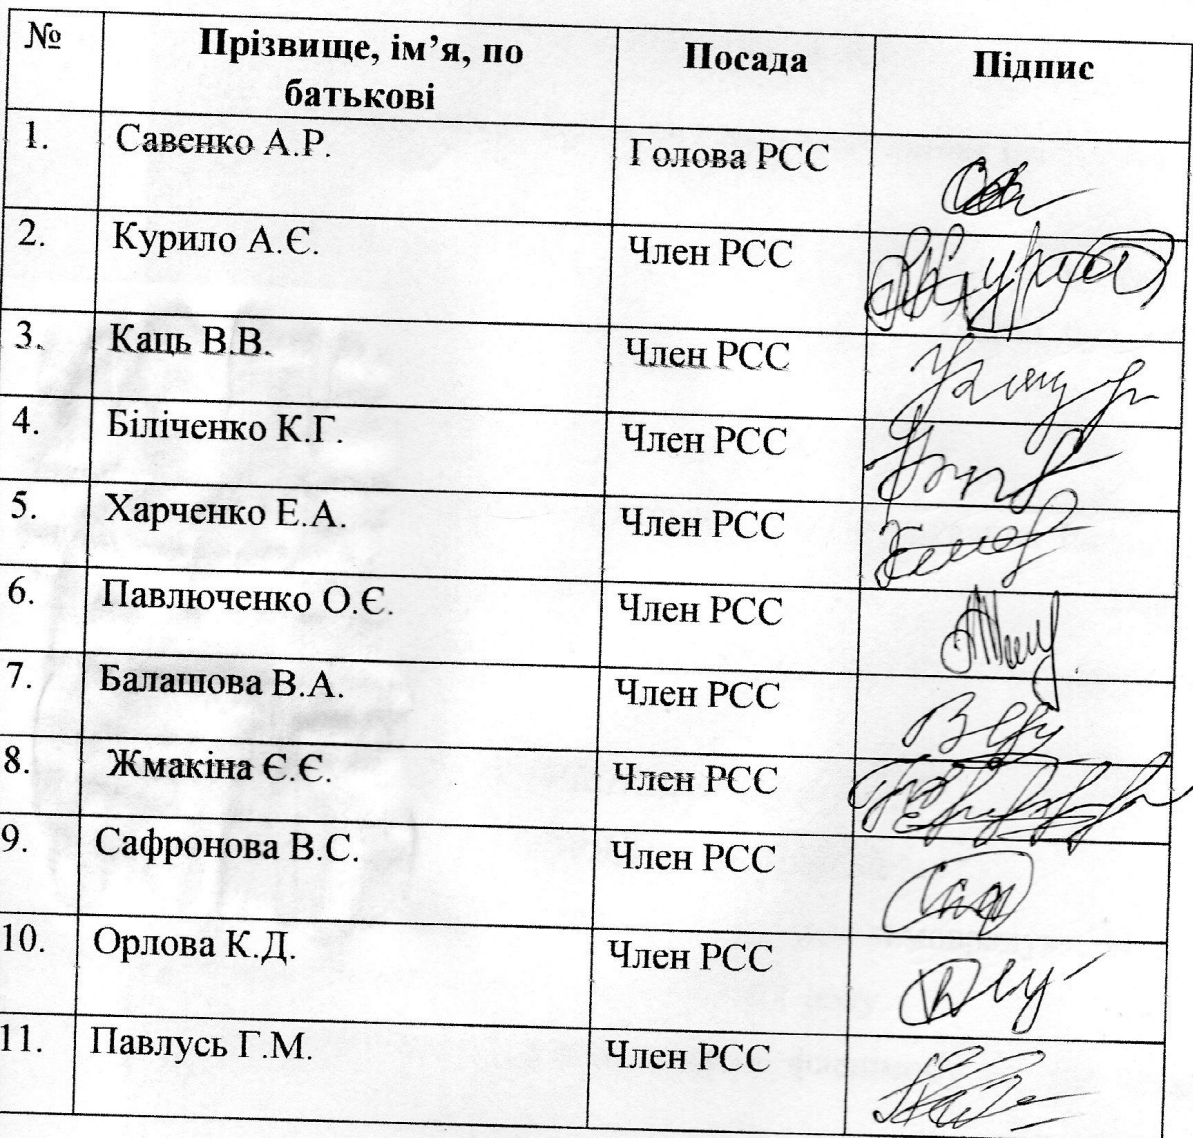 № Прізвище, ім’я, по батькові Посада Підпис
1. Савенко А.Р. Голова РСС
2. Курило А.Є. Член РСС
3. Каць В.В. Член РСС
4. Біліченко К.Г. Член РСС
5. Харченко Е.А. Член РСС
6. Павлюченко О.Є. Член РСС
7. Балашова В.А. Член РСС
8. Жмакіна Є.Є. Член РСС
9. Сафронова В.С. Член РСС
10. Орлова К.Д. Член РСС
11. Павлусь Г.М. Член РСС